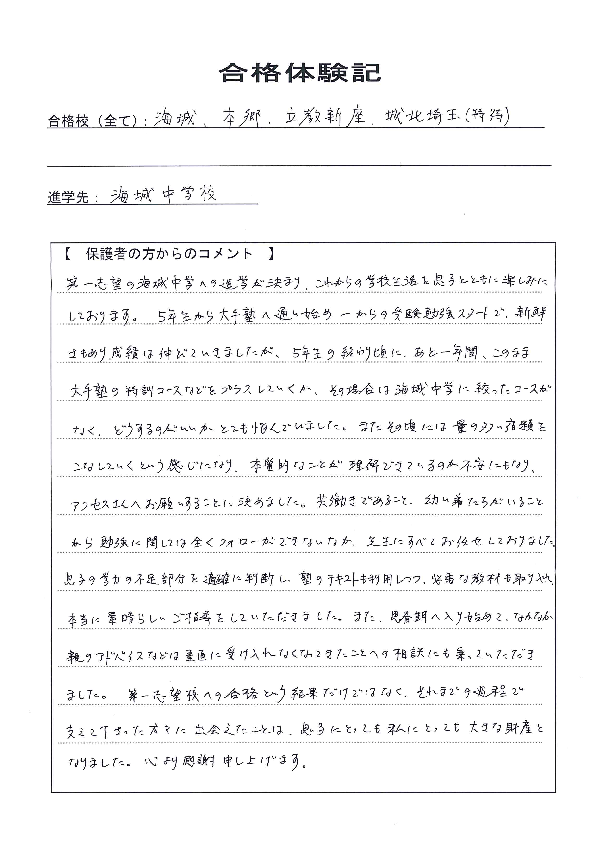 合格体験記
合格校（全て）：海城、本郷、立教新座、城北埼玉（特待）
進学先：海城中学校
【 保護者の方からのコメント 】
第一志望の海城中学への進学が決まり、これからの学校生活を息子とともに楽しみに
しております。 5年生から大手塾へ通い始め 一からの受験勉強スタートで、新鮮
さもあり成績は伸びていきましたが、5年生の終わり頃に、あと一年間、このまま
大手塾の特訓コースなどをプラスしていくか、その場合は海城中学に絞ったコースが
なく、どうするのがいいかとても悩んでいました。またその頃には量の多い宿題を
こなしていくという感じになり、本質的なことが理解できているのか不安にもなり、
アクセスさんへお願いすることに決めました。共働きであること、幼い弟たちがいること
から勉強に関しては全くフォローができないなか、先生にすべてお任せしておりました。
息子の学力の不足部分を適確に判断し、塾のテキストも利用しつつ、必要な教材も取り入れ
本当に素晴らしいご指導をしていただきました。また、思春期へ入り始めて、なかなか
親のアドバイスなどは素直に受け入れなくなってきたことへの相談にも乗っていただき
ました。 第一志望校への合格という結果だけではなく、それまでの過程で
支えて下さった方々に出会えたことは、息子にとっても私にとっても大きな財産と
なりました。心より感謝申し上げます。